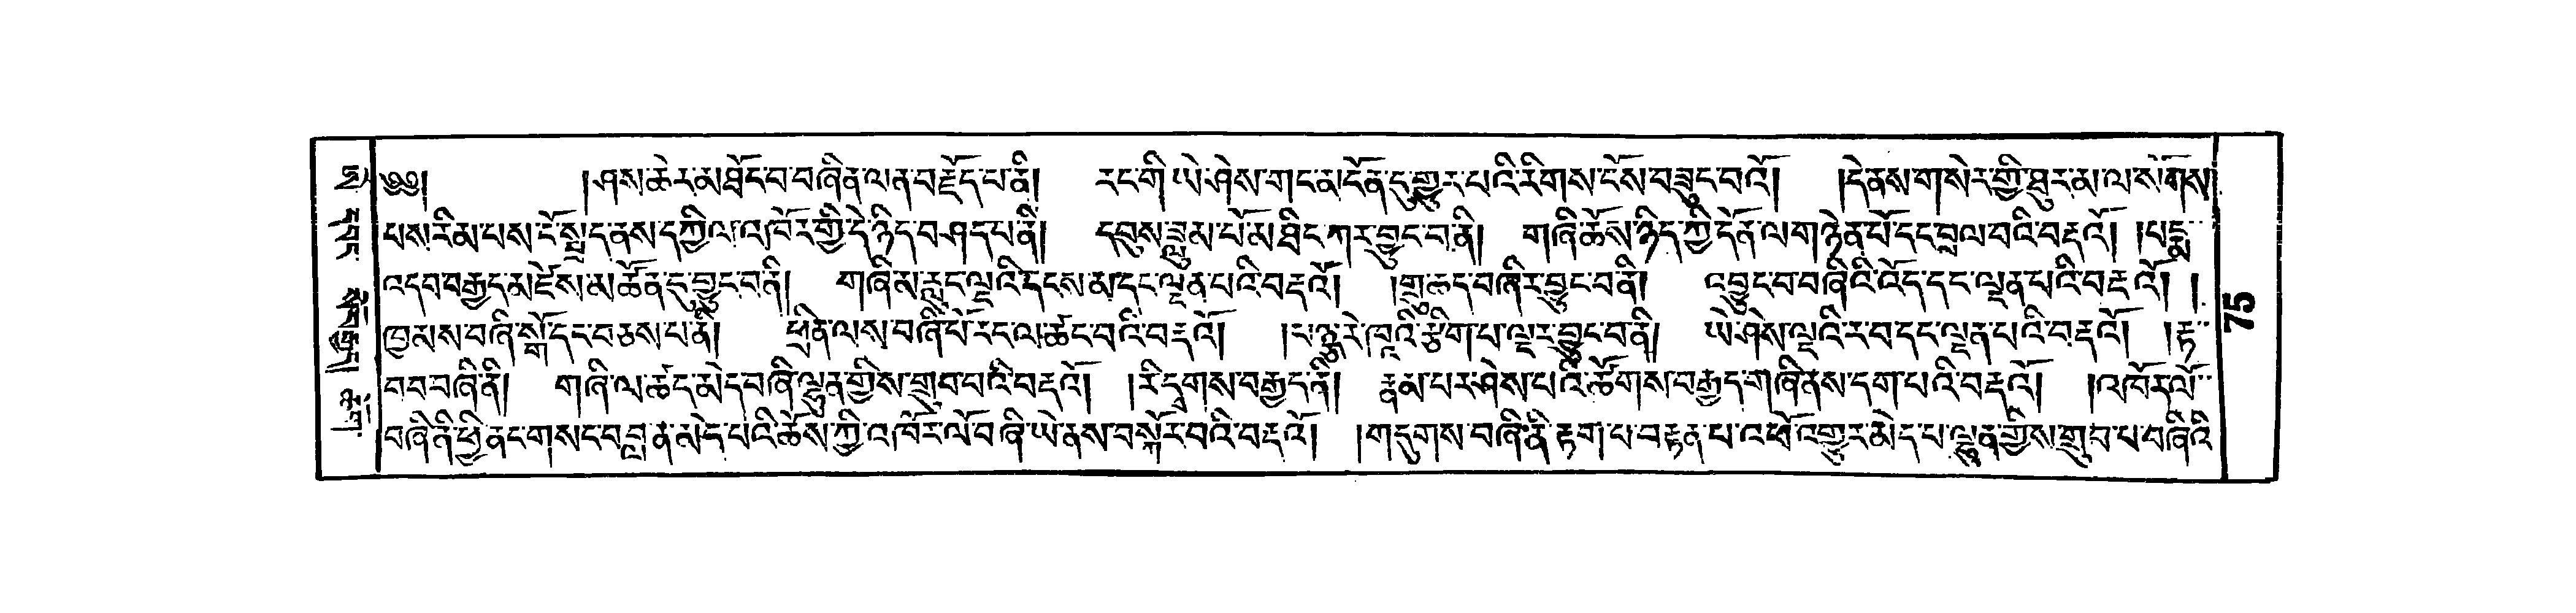 ༄༅། །ཤས་ཆེར་མ་ཐོང་བ་བཞིན་ལན་བརྗོད་པ་ནི། རང་གི་ཡེ་ཤེས་གདན་དོན་དུ་གྱུར་པའི་རིགས་ངོས་བཟུང་བའོ། །དེ་ནས་གསེར་གྱི་ཐུར་མ་ལ་སོགས་
པས་རིམ་པས་ངོ་སྤྲད་ནས་དཀྱིལ་འཁོར་གྱི་དེ་ཉིད་བཤད་པ་ནི། དབུས་ཟླུམ་པོ་མཐིང་ཀར་བྱུང་བ་ནི། གཞི་ཆོས་ཉིད་ཀྱི་དོན་ལ་གཉེན་པོ་དང་བྲལ་བའི་བརྡའོ། །པདྨ་
འདབ་བརྒྱད་མཛེས་མ་ཚོན་དུ་བྱུང་བ་ནི། གཞི་ནས་རླུང་ལྔའི་དྭངས་མ་དང་ལྡན་པའི་བརྡའོ། །གྲུ་ཆད་བཞིར་བྱུང་བ་ནི། འབྱུང་བ་བཞིའི་འོད་དང་ལྡན་པའི་བརྡའོ། །
ཁྱམས་བཞི་སྒོ་དང་བཅས་པ་ནི། ཕྲིན་ལས་བཞི་པོ་རང་ལ་ཚང་བའི་བརྡའོ། །ཕ་གུ་རེ་ཁཱའི་རྩིག་པ་ལྔར་བྱུང་བ་ནི། ཡེ་ཤེས་ལྔའི་རབ་དང་ལྡན་པའི་བརྡའོ། །རྟ་
བབ་བཞི་ནི། གཞི་ལ་ཚད་མེད་བཞི་ལྷུན་གྱིས་གྲུབ་པའི་བརྡའོ། །རི་དྭགས་བརྒྱད་ནི། རྣམ་པར་ཤེས་པའི་ཚོགས་བརྒྱད་གཞི་ནས་དག་པའི་བརྡའོ། །འཁོར་ལོ་
བཞི་ནི་ཕྱི་ནང་གསང་བ་བླ་ན་མེད་པའི་ཆོས་ཀྱི་འཁོར་ལོ་བཞི་ཡེ་ནས་བསྐོར་བའི་བརྡའོ། །གདུགས་བཞི་ནི་རྟག་པ་བརྟན་པ་འཕོ་འགྱུར་མེད་པ་ལྷུན་གྱིས་གྲུབ་པ་བཞིའི་